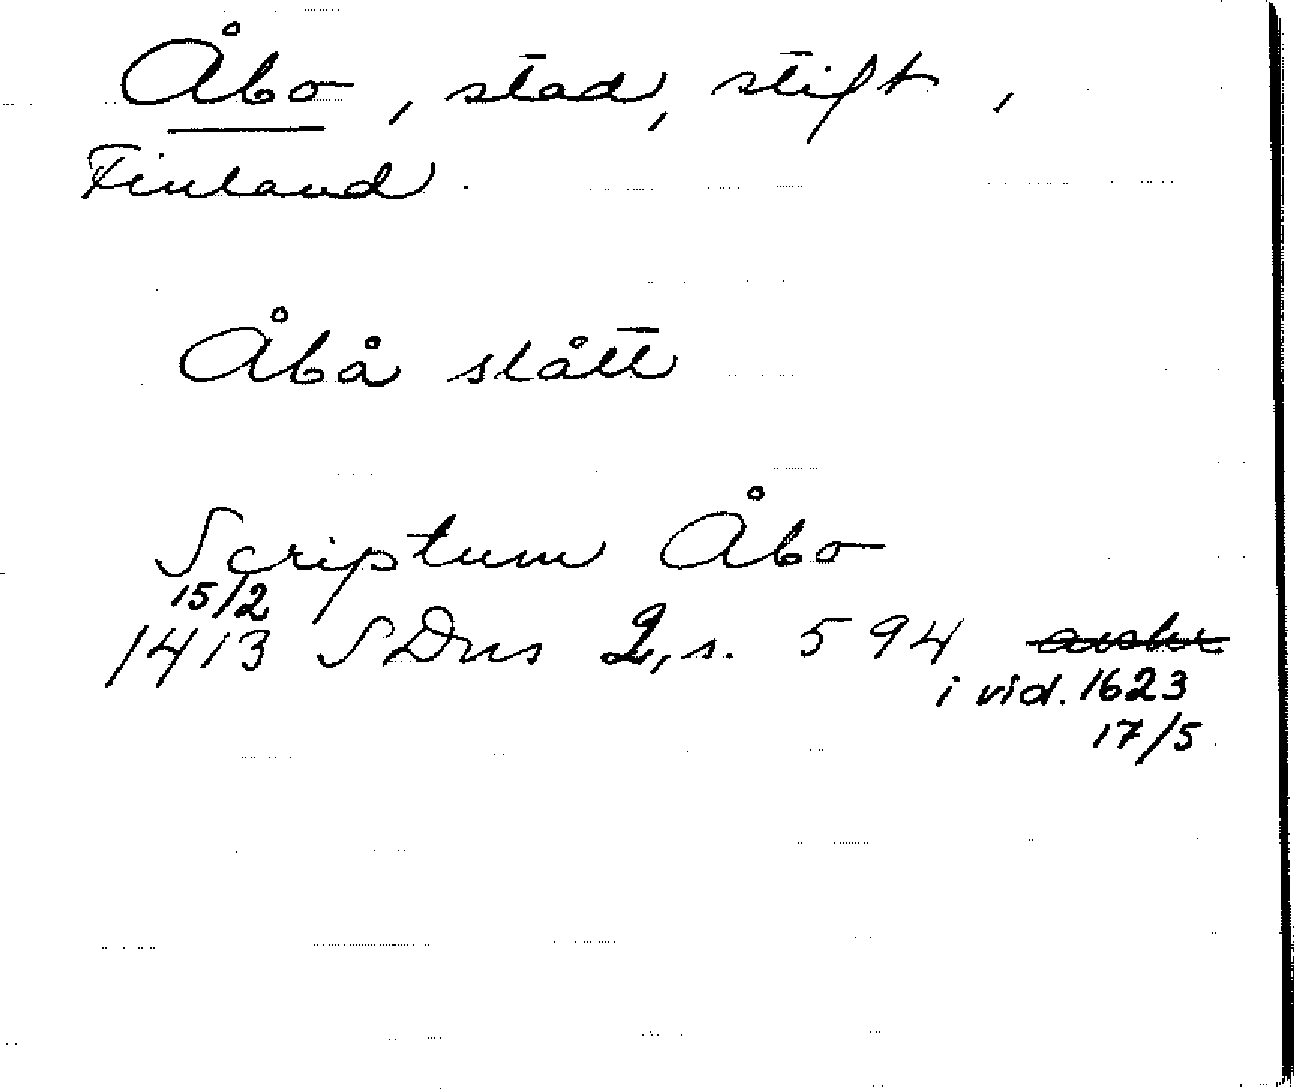 Åbo, stad, stift,
Finland.
Åbå slått
Scriptum Åbo
15/2
1413 SDns 2, s. 594
i vid. 1623
17/5